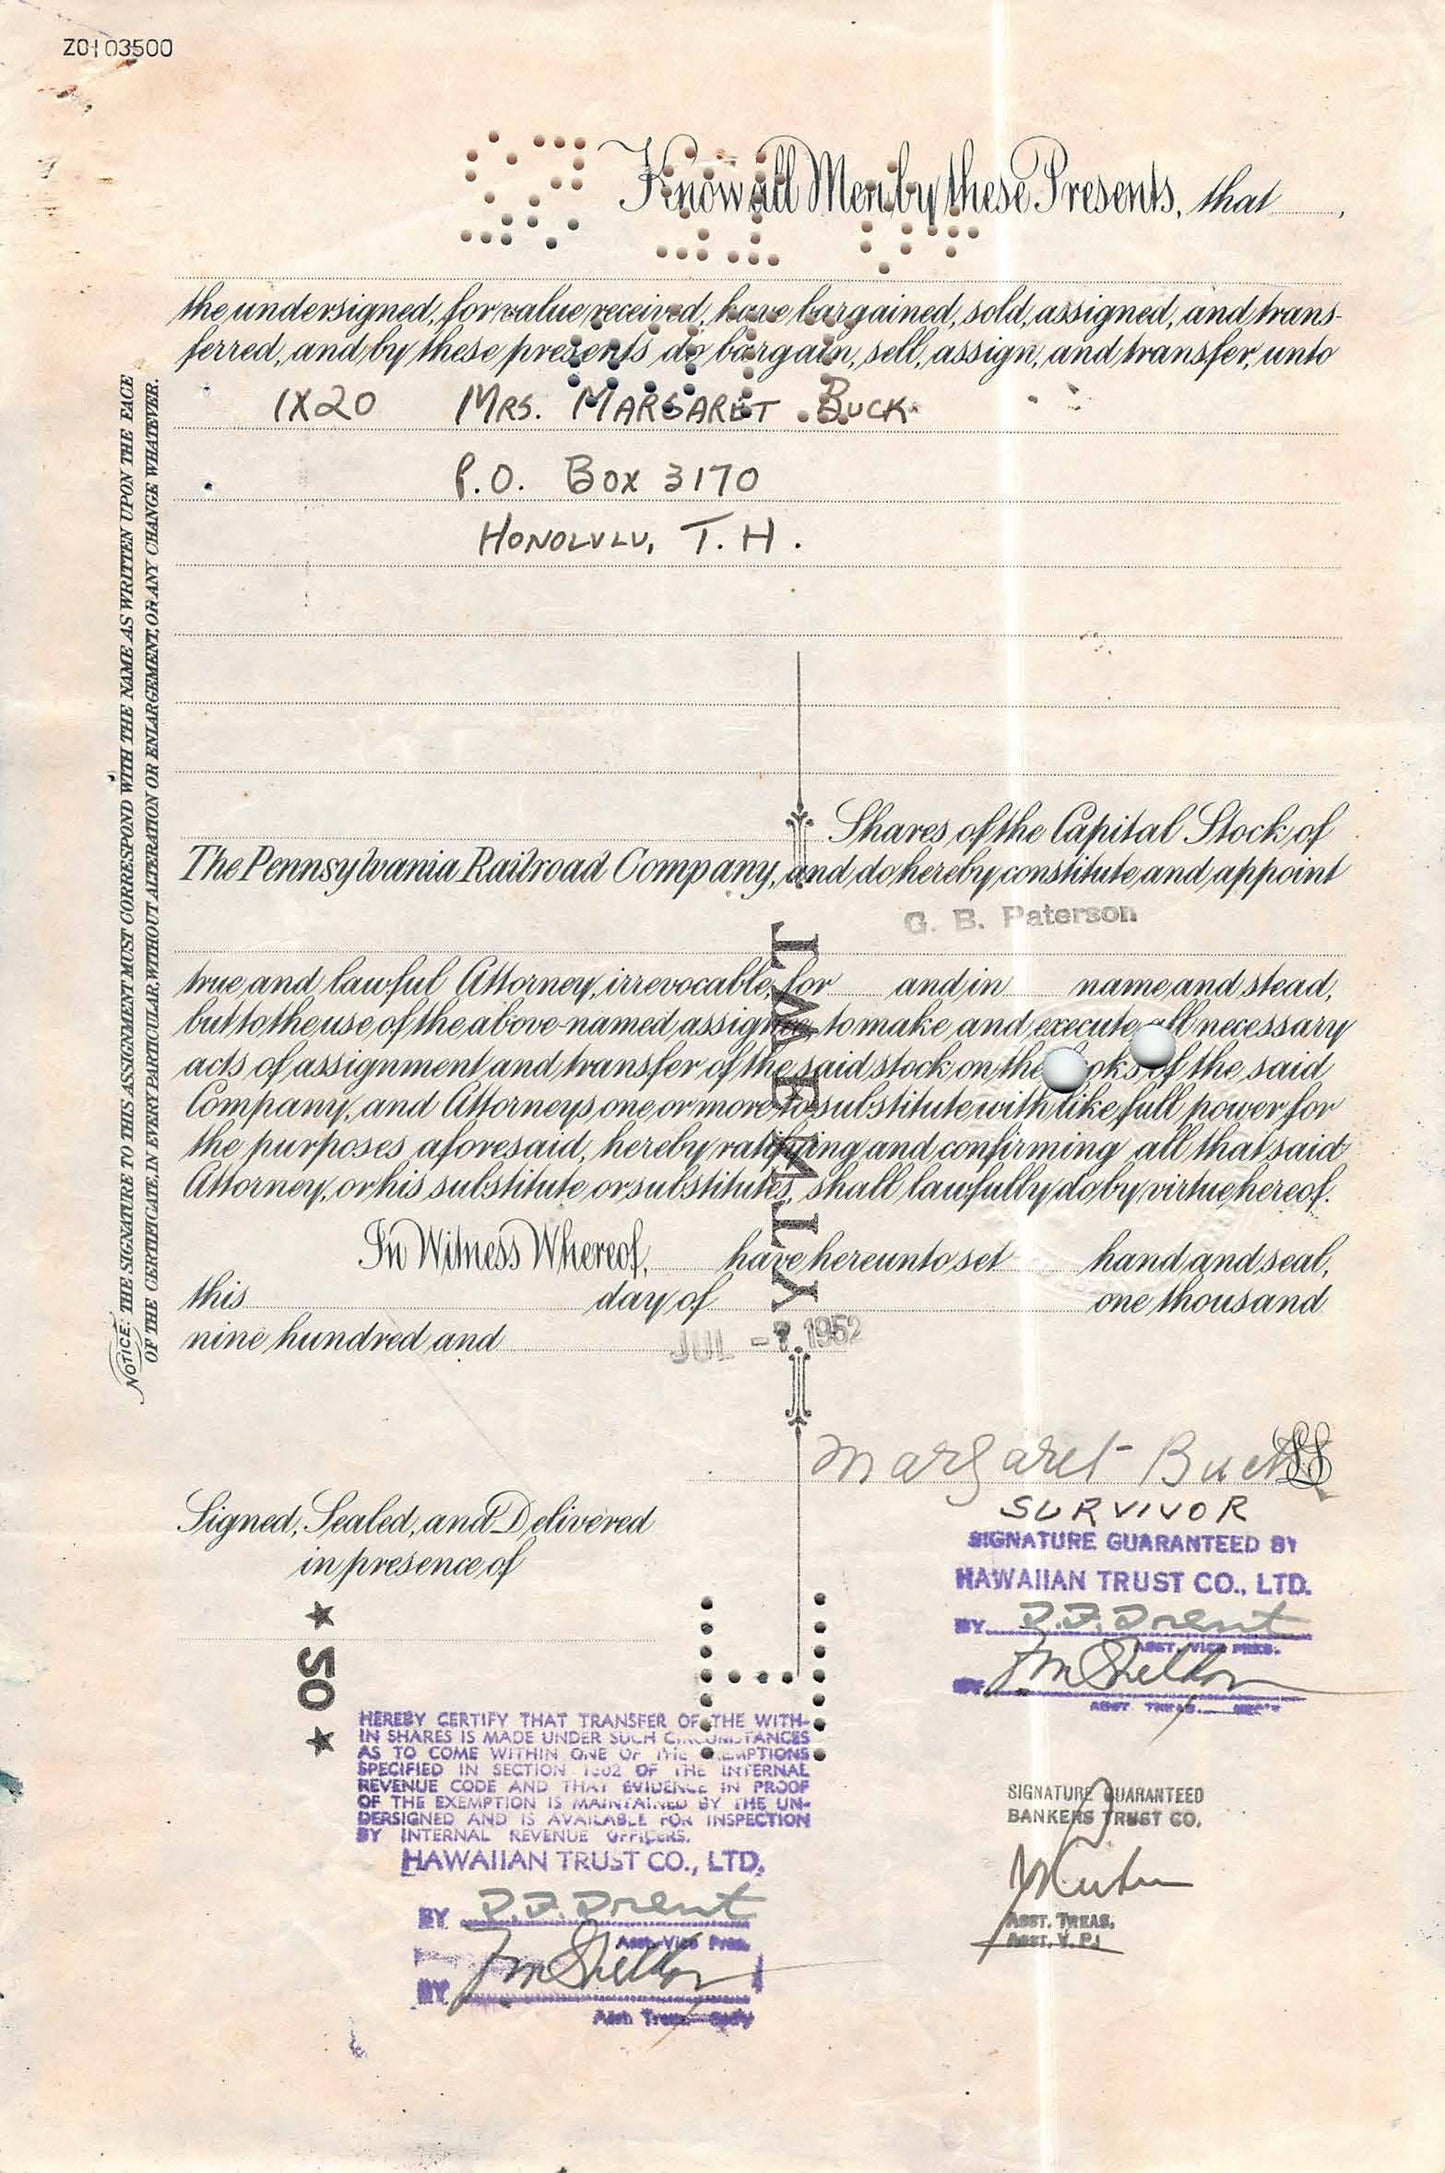 Z0103500
Know all Men by these Presents, that
the undersigned, for value received, have bargained, sold, assigned, and trans-
ferred, and by these presents do bargain, sell, assign, and transfer, unto
1X20 MRS. MARGARET BUCK
P.O. BOX 3170
HONOLULU, T.H.
Shares of the Capital Stock of
The Pennsylvania Railroad Company, and do hereby constitute and appoint
G. B. Paterson
true and lawful Attorney, irrevocable, for and in name and stead,
but to the use of the above-named assignee, to make and execute all necessary
acts of assignment and transfer of the said stock on the books of the said
Company, and Attorneys one or more to substitute with like full power for
the purposes aforesaid, hereby ratifying and confirming all that said
Attorney, or his substitute or substitutes, shall lawfully do by virtue hereof.
In Witness Whereof, have hereunto set hand and seal,
this day of one thousand
nine hundred and
JUL -7 1952
TWENTY
NOTICE: THE SIGNATURE TO THIS ASSIGNMENT MUST CORRESPOND WITH THE NAME AS WRITTEN UPON THE FACE
OF THE CERTIFICATE, IN EVERY PARTICULAR, WITHOUT ALTERATION OR ENLARGEMENT, OR ANY CHANGE WHATEVER.
Margaret Buck LS
SURVIVOR
SIGNATURE GUARANTEED BY
HAWAIIAN TRUST CO., LTD.
BY D.F. Drent
ASST. VICE PRES.
BY
ASST. TREAS. SEC'Y
Signed, Sealed, and Delivered
in presence of
★ 50 ★
HEREBY CERTIFY THAT TRANSFER OF THE WITH-
IN SHARES IS MADE UNDER SUCH CIRCUMSTANCES
AS TO COME WITHIN ONE OF THE EXEMPTIONS
SPECIFIED IN SECTION 1802 OF THE INTERNAL
REVENUE CODE AND THAT EVIDENCE IN PROOF
OF THE EXEMPTION IS MAINTAINED BY THE UN-
DERSIGNED AND IS AVAILABLE FOR INSPECTION
BY INTERNAL REVENUE OFFICERS.
HAWAIIAN TRUST CO., LTD.
BY D.F. Drent
Asst. Vice Pres.
BY
Asst. Treas. Sec'y
SIGNATURE GUARANTEED
BANKERS TRUST CO.
ASST. TREAS.
ASST. V. P.